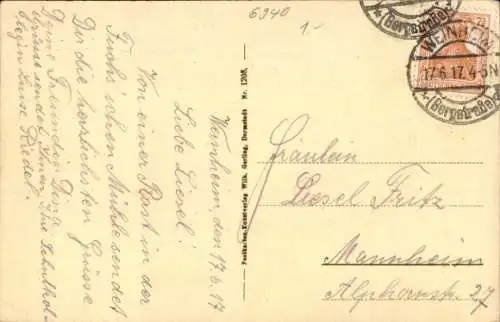 6940
1.-
(Bergstraße)
WEINHEIM
17.6.17. 4-5N
(Bergstraße)
Weinheim, den 17.6.17
Liebe Liesel!
Von einer Rast in der
Fuchs'schen Mühle sendet
Dir die herzlichsten Grüsse
Deine Freundin Dina
Grüsse sendet Ihnen Ihre Schulkol-
legin Luise Riedel.
Postkarten-Kunstverlag Wilh. Gerling, Darmstadt Nr. 1208.
Fräulein
Liesel Fritz
Mannheim
Alphornstr. 27